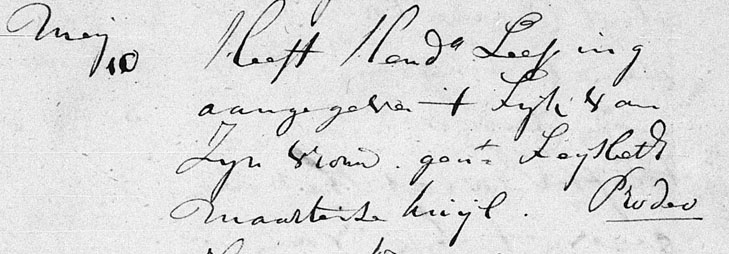 Meij 10 Heeft Hend.k Lessing
aangegeven t Lijk van
Zyn vrouw. gen.t Leysbeth
Maartense kuijl. Prodeo